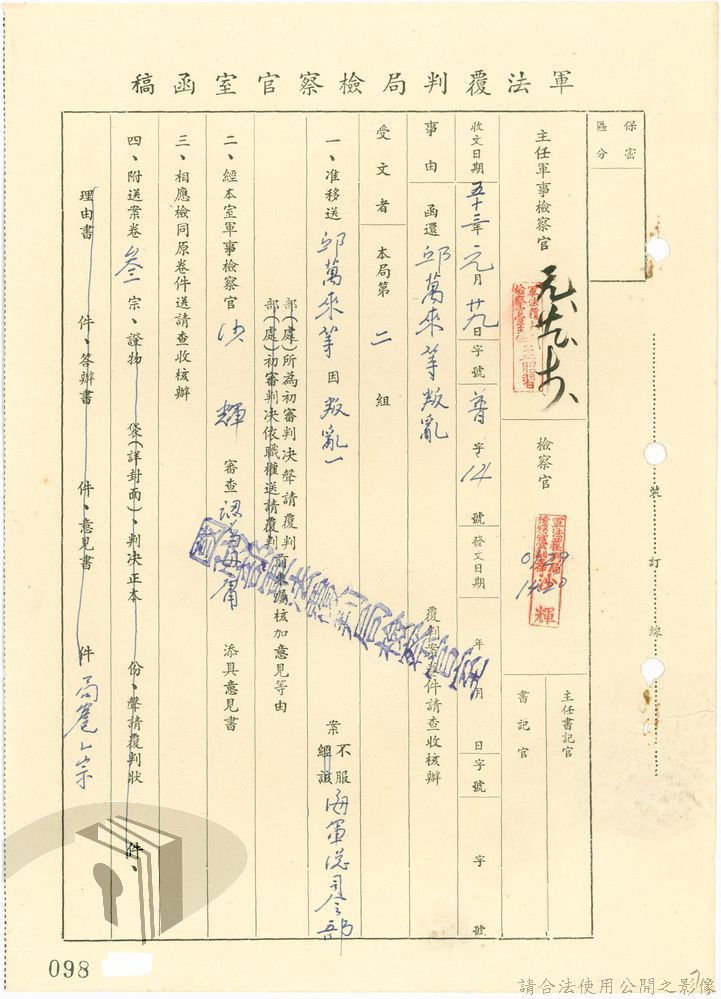 軍法覆判局檢察官室函稿
保密區分
主任軍事檢察官
檢察官
主任書記官
書記官
軍法覆判局檢察官沙輝
裝訂線
收文日期 五十三年元月廿九日 字號 普字14號 發文日期 年 月 日 字號 字 號
事由 函還邱萬來等叛亂 覆判案卷件請查收核辦
受文者 本局第二組
一、准移送邱萬來等因叛亂一案 不服 經該 海軍總司令部
部(處)所為初審判決聲請覆判
部(處)初審判決依職權送請覆判
前來囑核加意見等由
二、經本室軍事檢察官沙輝審查認為毋庸添具意見書
三、相應檢同原卷件送請查收核辦
四、附送案卷叁宗、證物 袋(詳封面)、判決正本 份、聲請覆判狀 件、
理由書 件、答辯書 件、意見書 件 局卷乙宗
國防部軍法覆判局檢察官室
098
請合法使用公開之影像